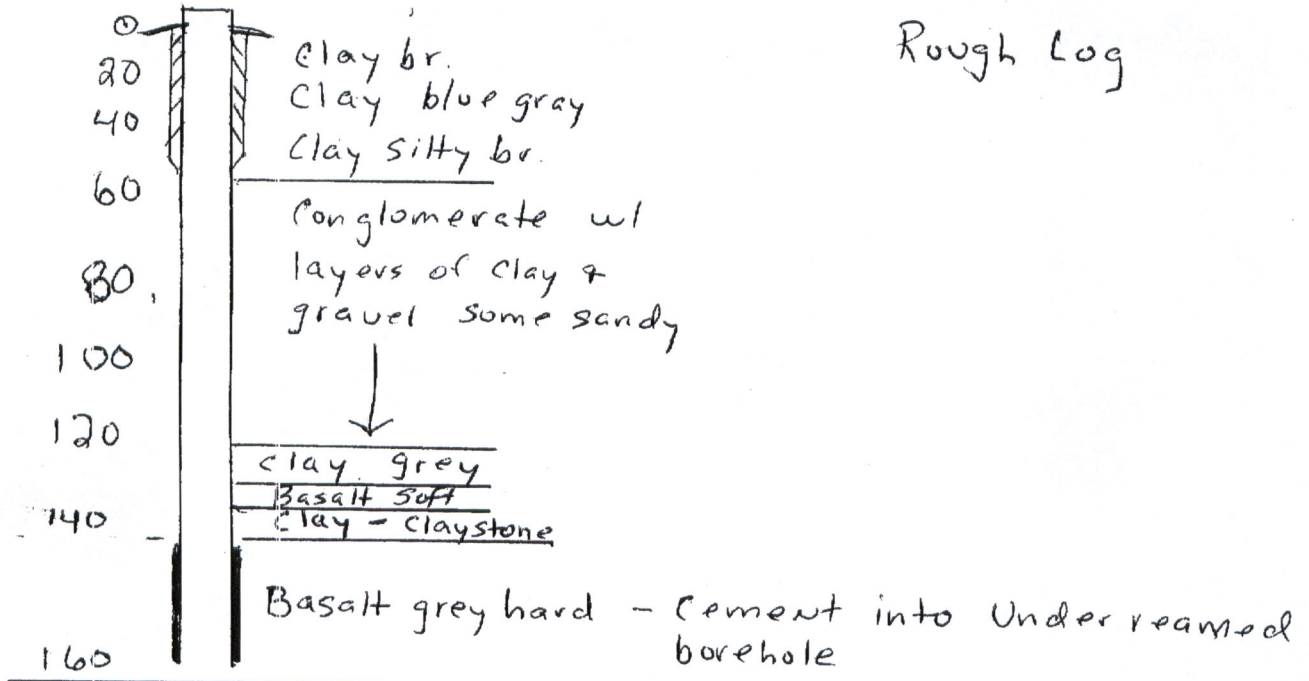 Rough Log
0
20
40
60
80
100
120
140
160
Clay br.
Clay blue gray
Clay silty br.
Conglomerate w/
layers of clay &
gravel some sandy
clay grey
Basalt soft
Clay - Claystone
Basalt grey hard - Cement into Underreamed
borehole